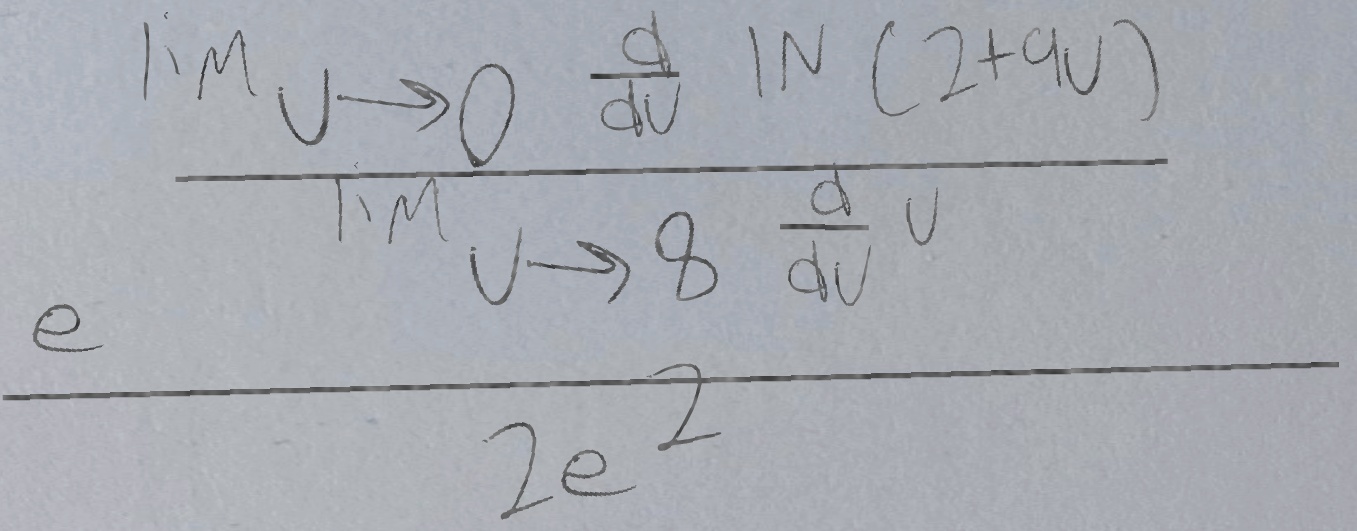 lim U→0 d/dU lN (2+9U)
lim U→8 d/dU U
e
2e^2